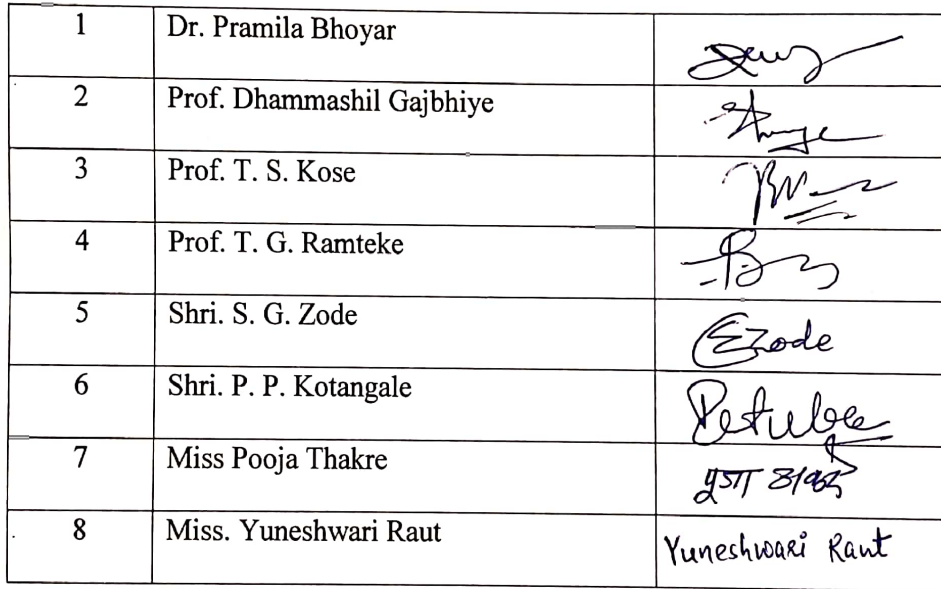 1 Dr. Pramila Bhoyar
2 Prof. Dhammashil Gajbhiye
3 Prof. T. S. Kose
4 Prof. T. G. Ramteke
5 Shri. S. G. Zode Zode
6 Shri. P. P. Kotangale
7 Miss Pooja Thakre पुजा ठाकरे
8 Miss. Yuneshwari Raut Yuneshwari Raut